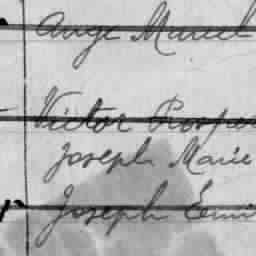 Ange Marcel
Victor Prosper
Joseph Marie
Joseph Emi